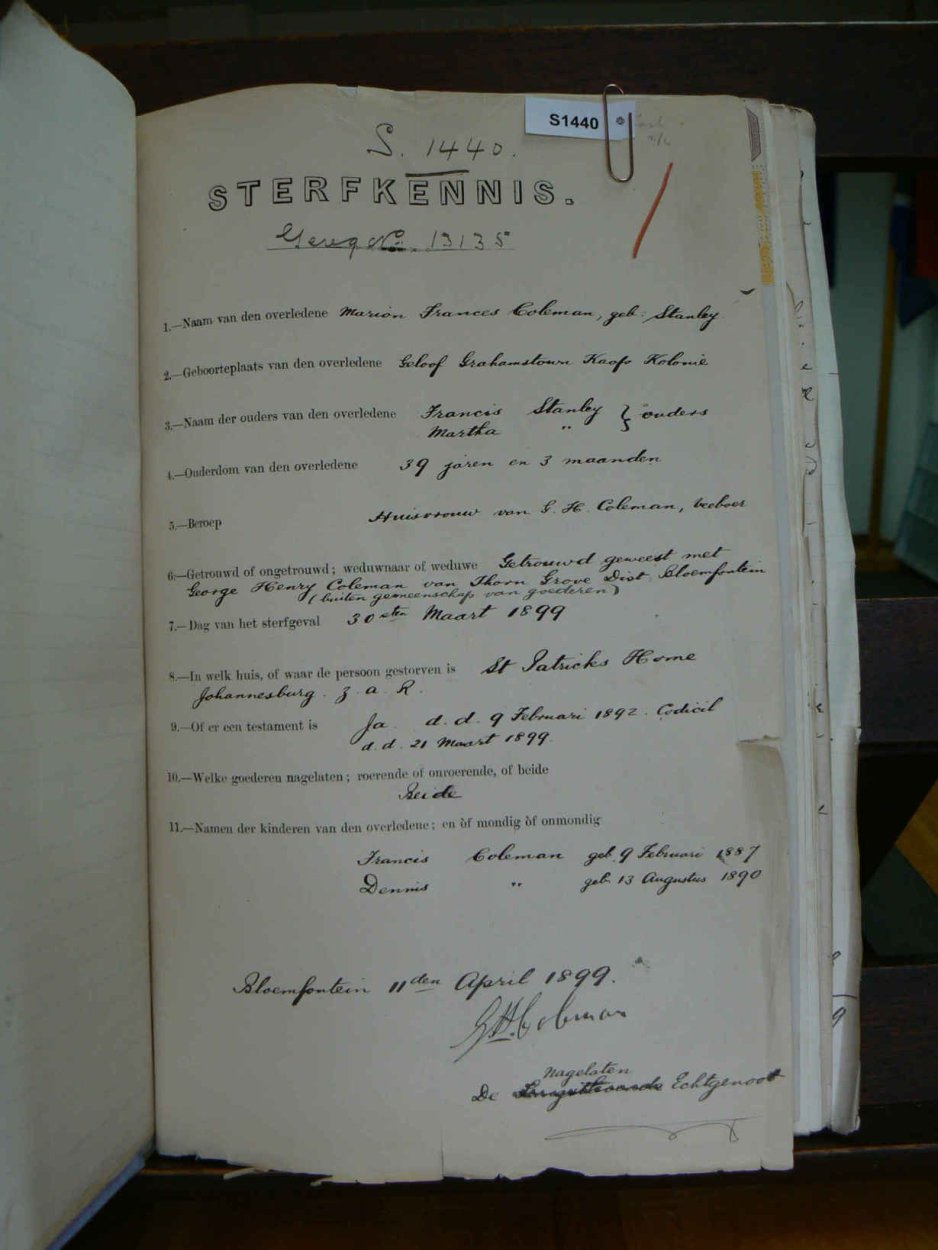 S. 1440.
S1440
STERFKENNIS.
Gereg No. 13135
1.—Naam van den overledene Marion Frances Coleman, geb: Stanley
2.—Geboorteplaats van den overledene Geloof Grahamstown Kaaps Kolonie
3.—Naam der ouders van den overledene Francis Stanley } ouders
Martha "
4.—Ouderdom van den overledene 39 jaren en 3 maanden
5.—Beroep Huisvrouw van G. H. Coleman, veeboer
6.—Getrouwd of ongetrouwd; weduwnaar of weduwe Getrouwd geweest met
George Henry Coleman van Thorn Grove Dist. Bloemfontein
(buiten gemeenschap van goederen)
7.—Dag van het sterfgeval 30sten Maart 1899
8.—In welk huis, of waar de persoon gestorven is St Patricks Home
Johannesburg. Z. A. R.
9.—Of er een testament is Ja. d. d. 9 Februari 1892. Codicil
d. d. 21 Maart 1899.
10.—Welke goederen nagelaten; roerende of onroerende, of beide
Beide
11.—Namen der kinderen van den overledene; en òf mondig òf onmondig
Francis Coleman geb. 9 Februari 1887
Dennis " geb. 13 Augustus 1890
Bloemfontein 11den April 1899.
GHColeman
Nagelaten
De Echtgenoot